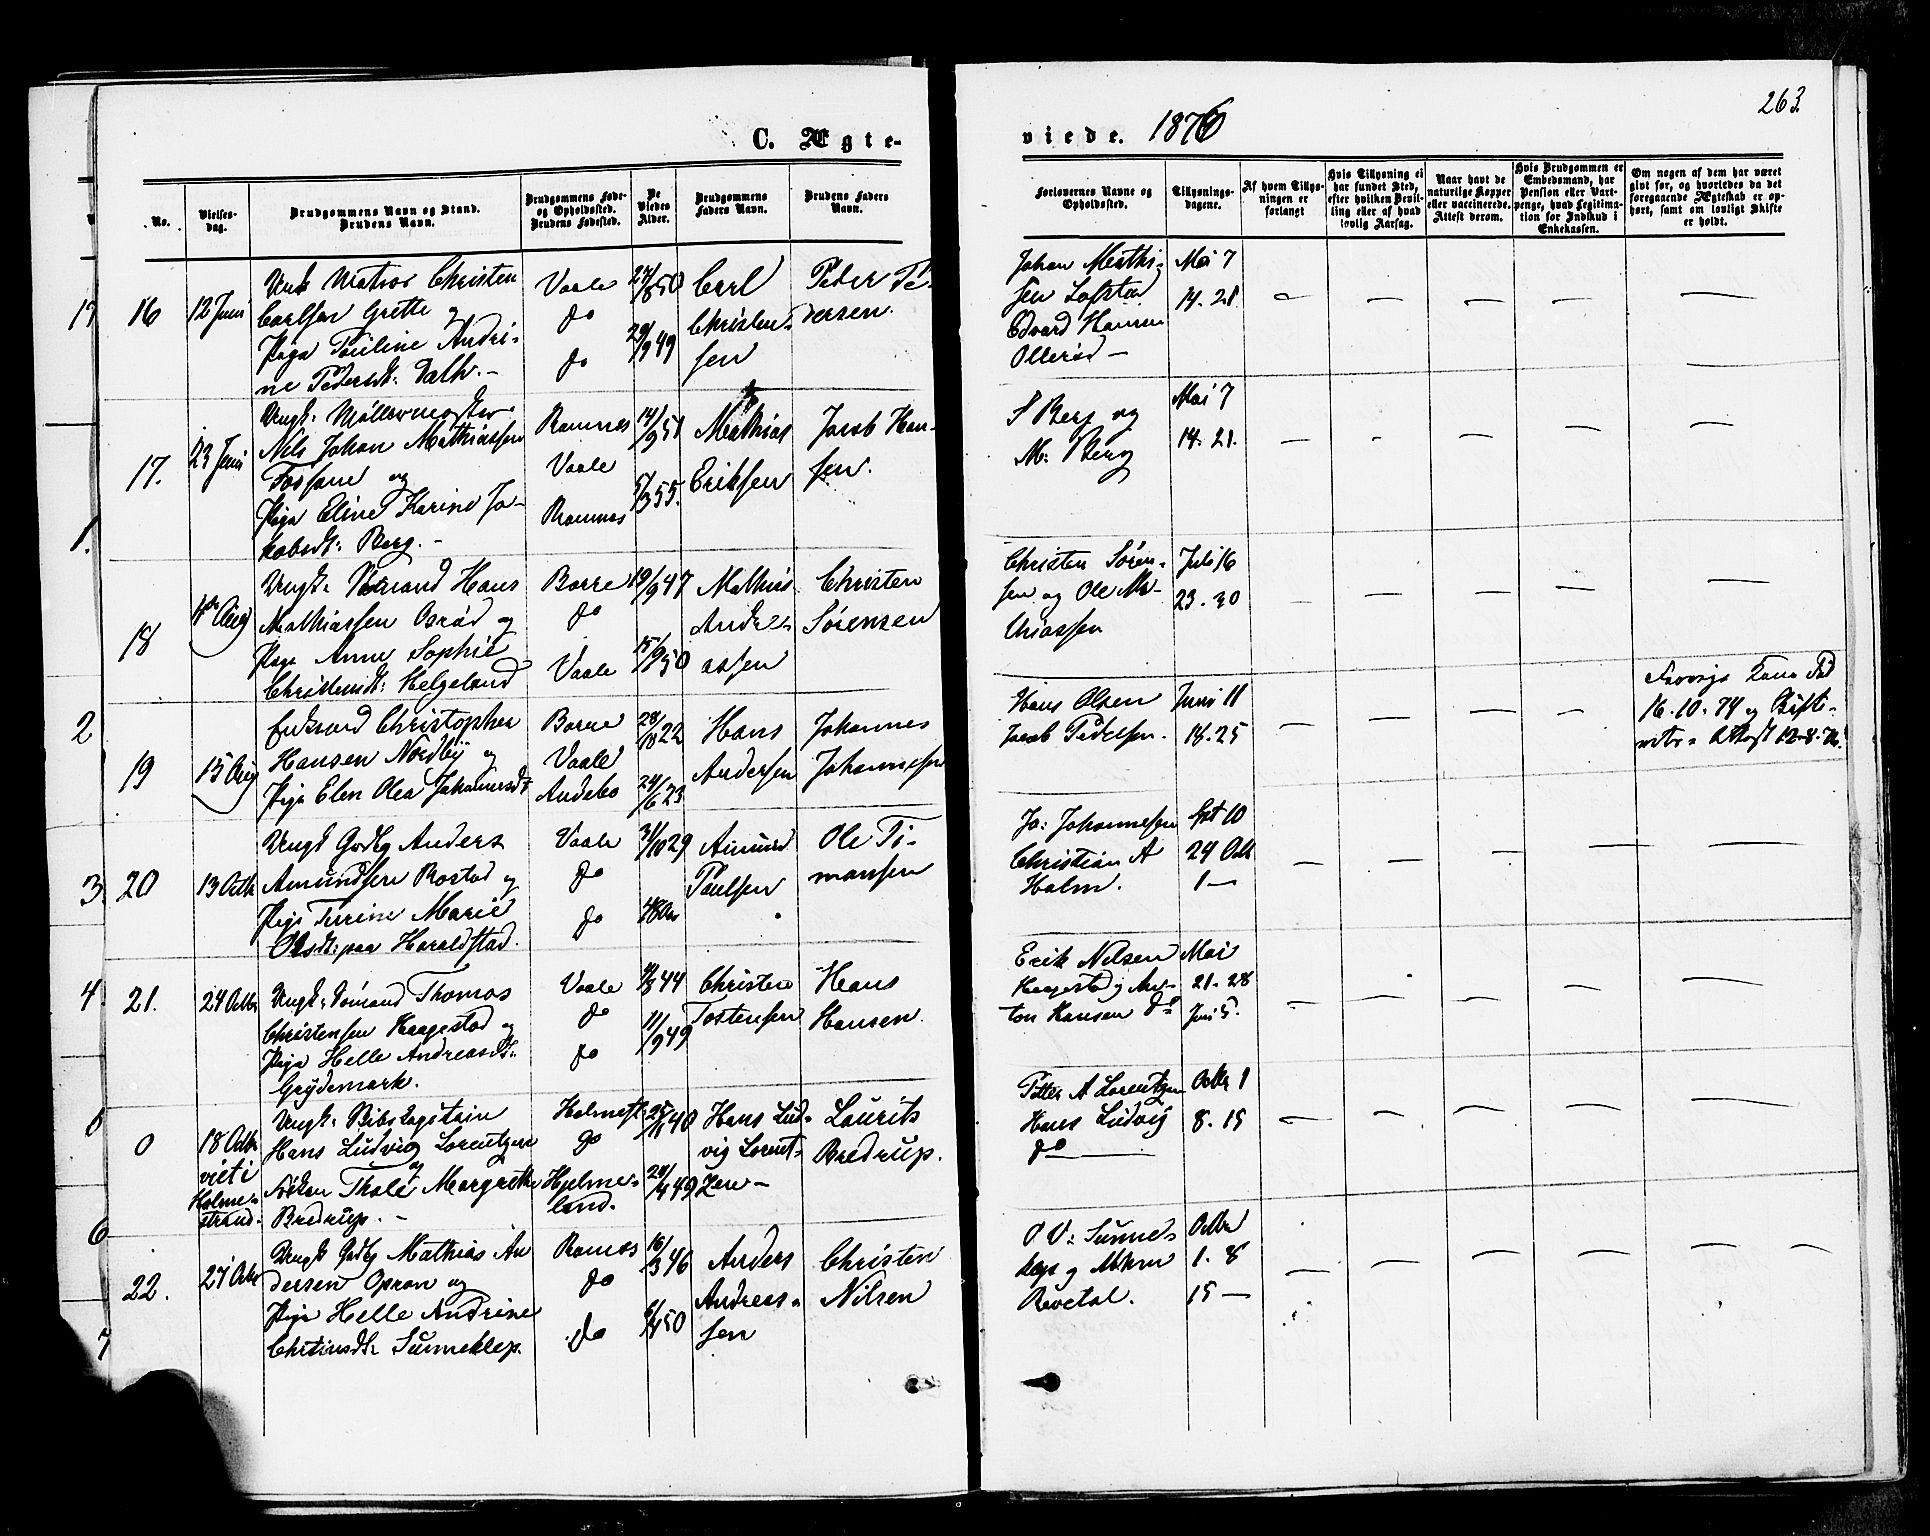 263
C. Ægte-
viede. 1876
No.
Vielses-
dag.
Brudgommens Navn og Stand.
Brudens Navn.
Brudgommens Føde-
og Opholdssted.
Brudens Fødested.
De
Viedes
Alder.
Brudgommens
Faders Navn.
Brudens Faders
Navn.
Forlovernes Navne og
Opholdssted.
Tillysnings-
dagene.
Af hvem Tillys-
ningen er
forlangt
Hvis Tillysning ei
har fundet Sted,
efter hvilken Bevil-
ling eller af hvad
lovlig Aarsag.
Naar havt de
naturlige Kopper
eller vaccinerede.
Attest derom.
Hvis Brudgommen er
Embedsmand, har
Pension eller Vart-
penge, hvad Legitima-
tion for Indskud i
Enkekassen.
Om nogen af dem har været
givt før, og hvorledes da det
foregaaende Ægteskab er op-
hørt, samt om lovligt Skifte
er holdt.
16
12 Juni
Ungk Matros Christen
Carlsen Grette og
Pige Pauline Andri-
ne Pedersdt: Dalh. -
Vaale
do
do
27/8 50
29/9 49
Carl
Christen-
sen
Peder Pe-
dersen.
Johan Mathi-
sen Lofstad
Edvard Hansen
Ollerød -
Mai 7
14. 21.
17.
23 Juni
Ungk: Møllermester
Nils Johan Mathiassen
Fossane og
Pige Eline Karine Ja-
kobsdt: Berg. -
Ramnes
Vaale
Ramnes
14/9 51
5/3 55.
Mathias
Eriksen
Jacob Han-
sen.
S Berg og
M: Berg
Mai 7
14. 21.
18
4de Aug
Ungk: Sømand Hans
Mathiassen Osrød og
Pige Anne Sophie
Christensdt: Helgeland
Borre
do
Vaale
19/9 47
15/9 50
Mathias
Andre-
assen
Christen
Sørensen
Christen Søren-
sen og Ole Ma-
thiassen
Juli 16
23. 30
19
15 Aug
Enkemand Christopher
Hansen Nordby og
Pige Elen Olea Johannesdt
Borre
Vaale
Andebo
28/10 22
24/6 23
Hans
Andersen
Johannes
Johannesen
Hans Olsen
Jacob Pedersen.
Juni 11
18. 25
16. 10. 74 og Skifte-
20
13 Octb
Ungk Gdbg Anders
Amundsen Rostad og
Pige Turine Marie
Olsdt: paa Haraldstad.
Vaale
do
do
31/10 29
48 Aar
Amund
Paulsen
Ole Ti-
mansen
Jo: Johannesen
Christian A
Holm.
Spt 10
24 Octb
1 -
21.
24 Octbr
Ungk: Sømand Thomas
Christensen Haagestad og
Pige Helle Andreasdt:
Grydemark.
Vaale
do
do
4/8 44
11/9 49
Christen
Tostensen
Hans
Hansen.
Erik Nilsen
Haagestad og An-
ton Hansen do
Mai
21. 28
Juni 5.
0
18 Octbr
viet i
Holme-
strand.
Ungk: Skibskaptain
Hans Ludvig Lorentzen
og
Frøken Thale Margrethe
Bredrup. -
Holmest.
do
Hjelme-
land.
25/11 40
24/4 49
Hans Lud-
vig Lorent-
zen -
Laurits
Bredrup.
Petter A Lorentzen
Hans Ludvig
do
Octbr 1
8. 15
22.
27 Octbr
Ungk Gdbg Mathias An
dersen Opran og
Pige Helle Andrine
Chrtinsdt: Sunneklep.
Ramnes
do
do
16/3 46
6/4 50
Anders
Andreas-
sen
Christen
Nilsen
O V: Sunne-
klep og
Revetal.
Octbr
1. 8
15 -
17
1.
2
3.
4.
6
7